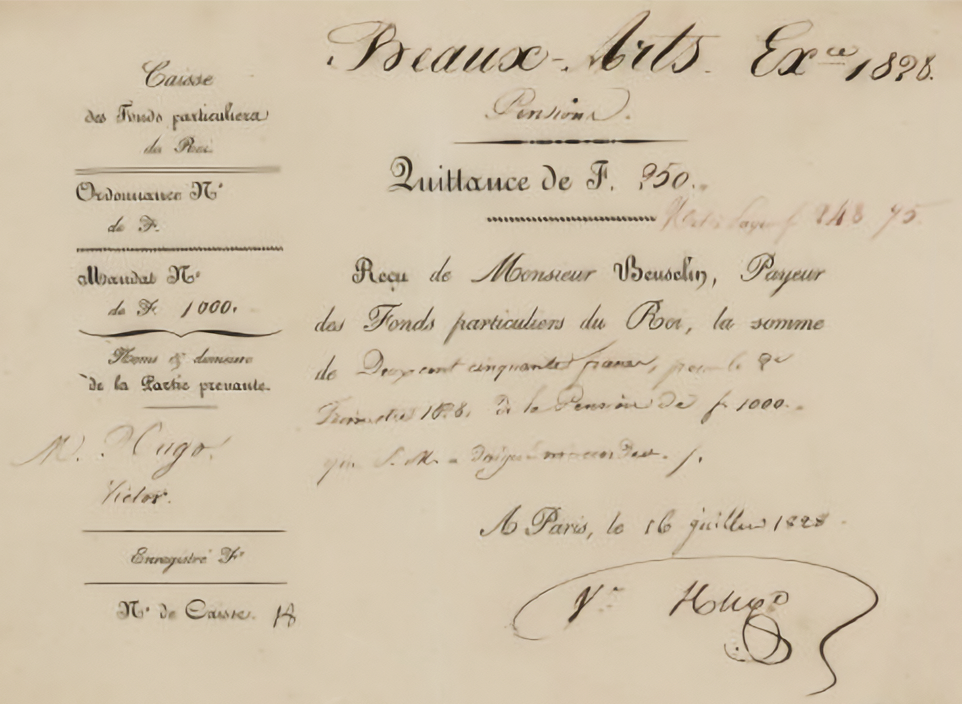 Beaux-Arts. Ex^ce 1828.
Pension.
Quittance de F. 250.
243 75.
Caisse
des Fonds particuliers
du Roi.
Ordonnance N°
de F.
Mandat N°
de F. 1000.
Noms & demeure
de la Partie prenante.
M. Hugo
Victor.
Enregistré F°
N° de Caisse. 18
Reçu de Monsieur Beuselin, Payeur
des Fonds particuliers du Roi, la somme
de Deux cent cinquante francs, pour le 2e
Trimestre 1828. de la Pension de f 1000.
que S. M. a daigné m'accorder. /.
A Paris, le 16 juillet 1828.
V^or Hugo